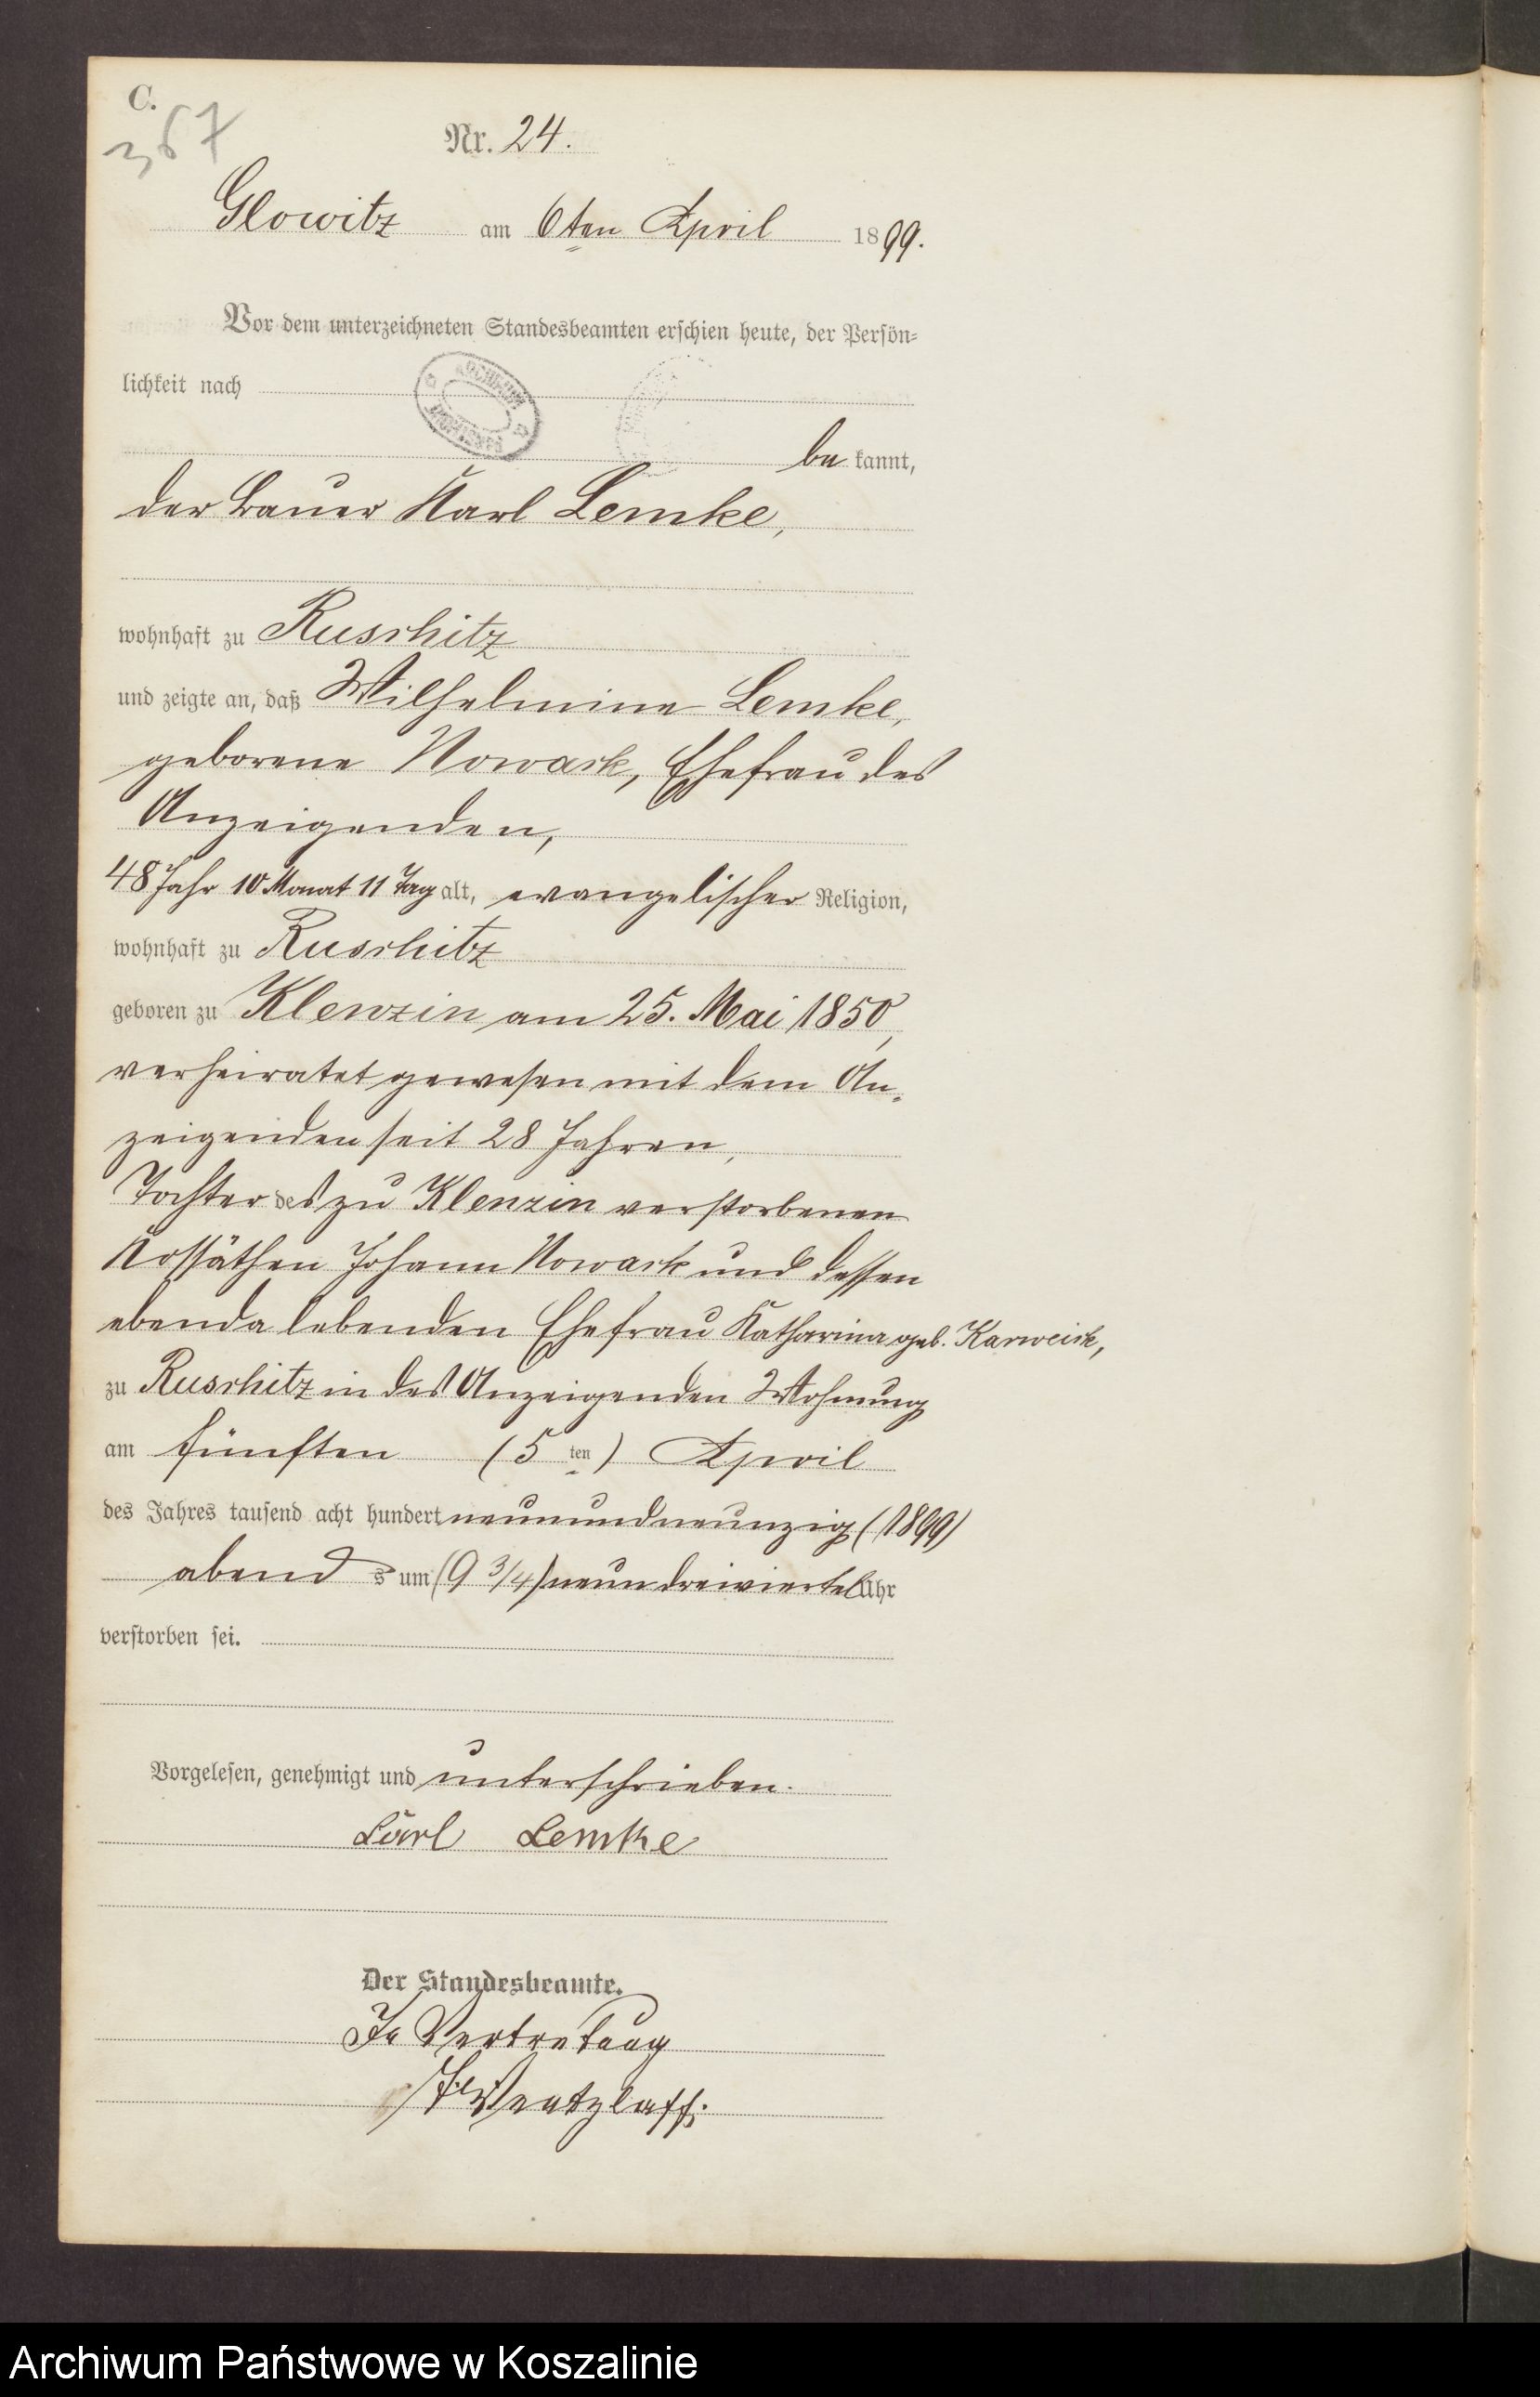 C.
367
Nr. 24.
Glowitz am 6ten April 1899.
Vor dem unterzeichneten Standesbeamten erschien heute, der Persön=
lichkeit nach
be kannt,
der Bauer Karl Lemke,
wohnhaft zu Ruschitz
und zeigte an, daß Wilhelmine Lemke,
geborene Nowack, Ehefrau des
Anzeigenden,
48 Jahr 10 Monat 11 Tag alt, evangelischer Religion,
wohnhaft zu Ruschitz
geboren zu Klenzin am 25. Mai 1850,
verheiratet gewesen mit dem An=
zeigenden seit 28 Jahren,
Tochter des zu Klenzin verstorbenen
Kossäthen Johann Nowack und dessen
ebenda lebenden Ehefrau Katharina geb. Karweick,
zu Ruschitz in des Anzeigenden Wohnung
am fünften (5 ten) April
des Jahres tausend acht hundert neunundneunzig (1899)
abend s um (9 3/4) neun dreiviertel Uhr
verstorben sei.
Vorgelesen, genehmigt und unterschrieben.
Carl Lemke
Der Standesbeamte.
In Vertretung
Wentzlaff.
Archiwum Państwowe w Koszalinie